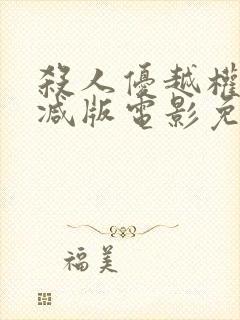 殺人優越權
減版電影免
福美